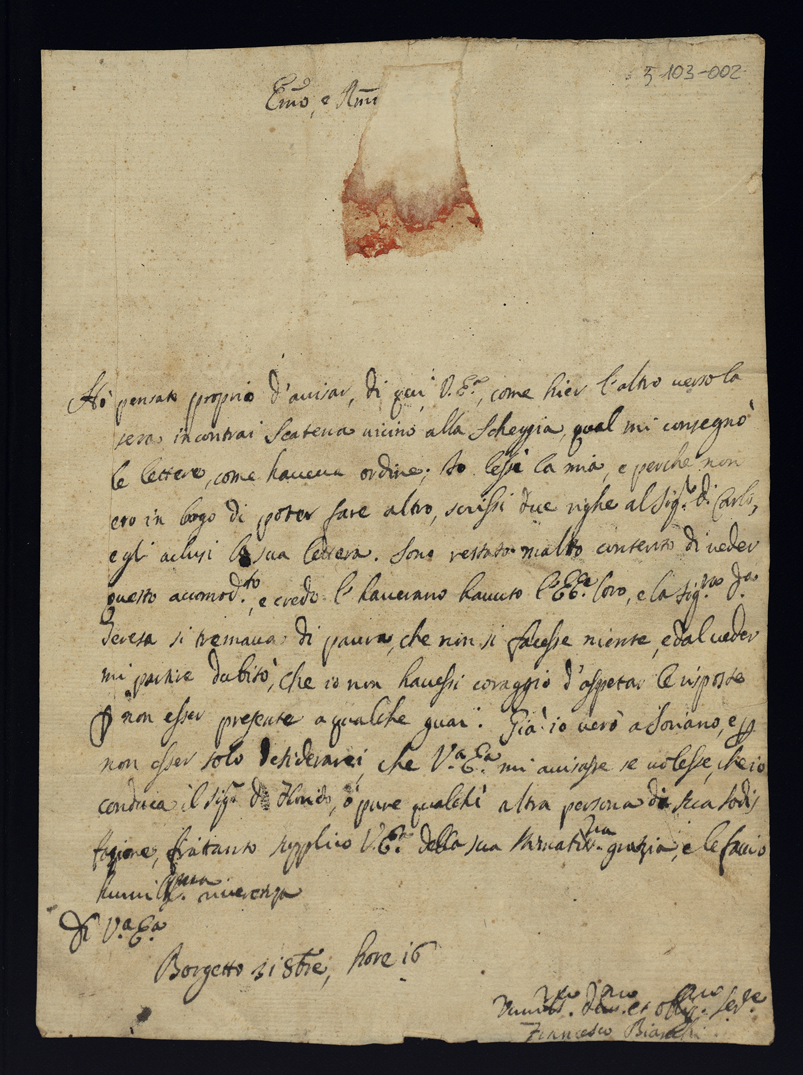 5 103-002
Em̃o, e Rm̃
Hò pensato proprio d'avisar, di quì V.Eª, come hier l'altro verso la
sera incontrai Scatena vicino alla Scheggia, qual mi consegnò
le lettere, come haveva ordine; Io lessi la mia, e perche non
ero in logo di poter fare altro, scrissi due righe al Sigr. D. Carlo,
e gli aclusi la sua lettera. Sono restato molto contento di veder
questo acomod.to, e credo l'haveranno havuto l'EE. loro, e la Sig.ra D.a
Teresa si tremava di paura, che non si facesse niente, e dal veder
mi partire dubitò, che io non havessi coraggio d'aspetar le risposte
non esser presente a qualche guai. Già io verò a Soriano, e
non esser solo desiderarei, che V.a E.a mi avisasse se volesse, che io
conduca il Sigr D. Florido, ò pure qualchi altra persona di sua sodis
fazione, frattanto supplico V.Eª. della sua gratia, e le faccio
humilissma riverenza
Di V.a E.a
Borgetto 31 8bre, hore 16
et obligmo Ser.e
Francesco Bianchi